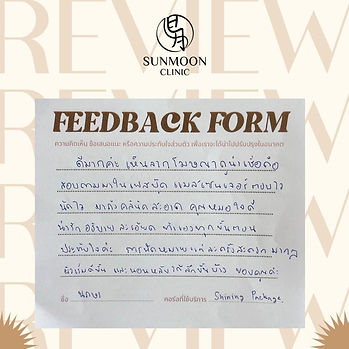 SUNMOON
CLINIC
FEEDBACK FORM
ความคิดเห็น ข้อเสนอแนะ หรือความประทับใจส่วนตัว เพื่อเราจะได้นำไปปรับปรุงในอนาคต
ดีมากค่ะ เห็นจากโฆษณาดูน่าเชื่อถือ
สอบถามมาในเฟสบุ๊ค แมสเซนเจอร์ ตอบไว
นัดไว มาถึงคลินิคสะอาด คุณหมอใจดี
น่ารัก อธิบายละเอียด ทำเบาทุกขั้นตอน
ประทับใจค่ะ การนัดหมายแต่ละครั้งสะดวก มาก
ผิวเริ่มดีขึ้น และนอนหลับได้ลึกขึ้นบ้าง ขอบคุณค่ะ
ชื่อ คอร์สที่ใช้บริการ Shining Package.
REVIEW
REVIEW